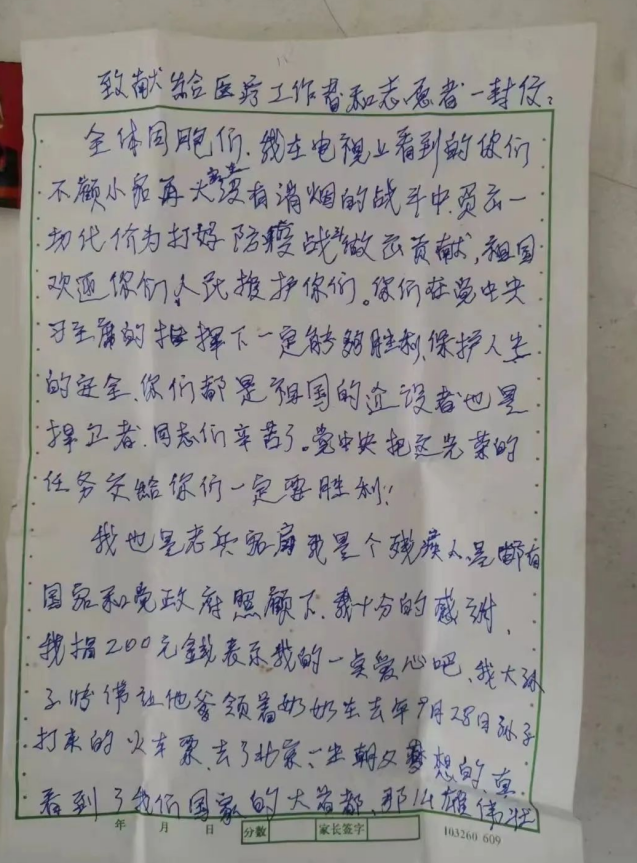 致献给医疗工作者和志愿者一封信:
全体同胞们、我在电视上看到的你们
不顾小家再火没有消烟的战斗中员去一
切代价为打好防疫战做出贡献,祖国
欢迎你们人民拥护你们。你们在党中央
习主席的指挥下一定能够胜利、保护人类
的安全、你们都是祖国的建设者也是
捍卫者、同志们辛苦了。党中央把这光荣的
任务交给你们一定要胜利!
我也是老兵家属我是个残疾人是
国家和党政府照顾下、我十分的感谢、
我捐200元钱表示我的一点爱心吧、我大孙
子 让他爹领着奶奶 去年9月28日孙子
打来的火车票、去了北京、一生朝夕梦想的、真
看到了我们国家的大首都、那么雄伟壮
年 月 日 分数 家长签字 103260 609